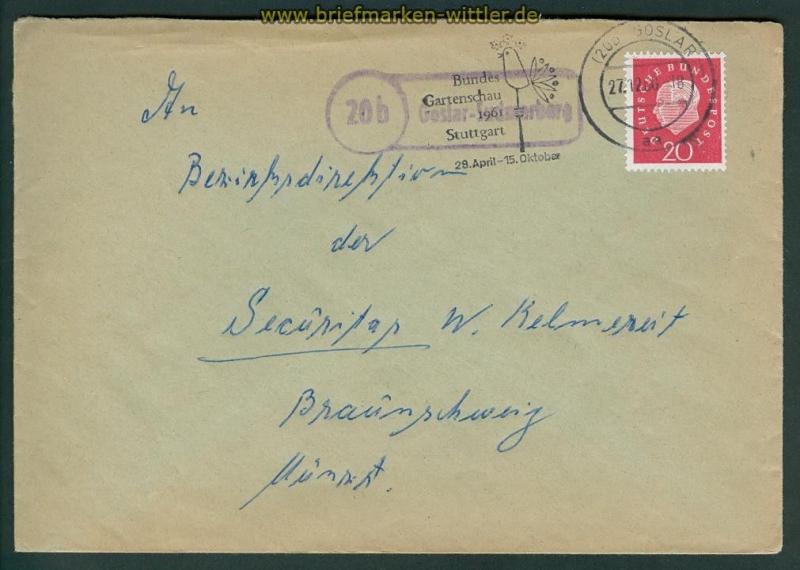 www.briefmarken-wittler.de
Bundes
Gartenschau
1961
Stuttgart
28. April – 15. Oktober
20b
Goslar-
(20b) GOSLAR
27.12.60 - 18
DEUTSCHE BUNDESPOST
20
An
Bezirksdirektion
der
Securitas W.
Braunschweig
Münzst.